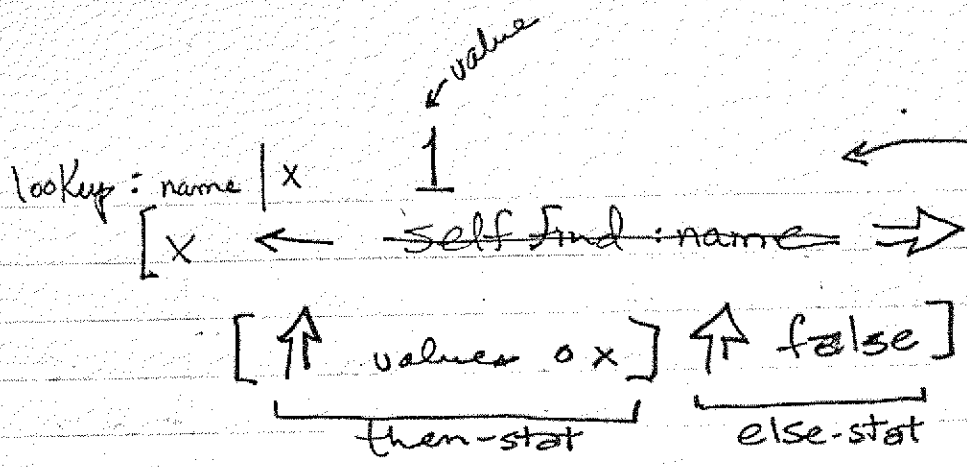 value
1
lookup: name | x
[x ← self find: name ⇒
[⇑ values o x] ⇑ false]
then-stat else-stat